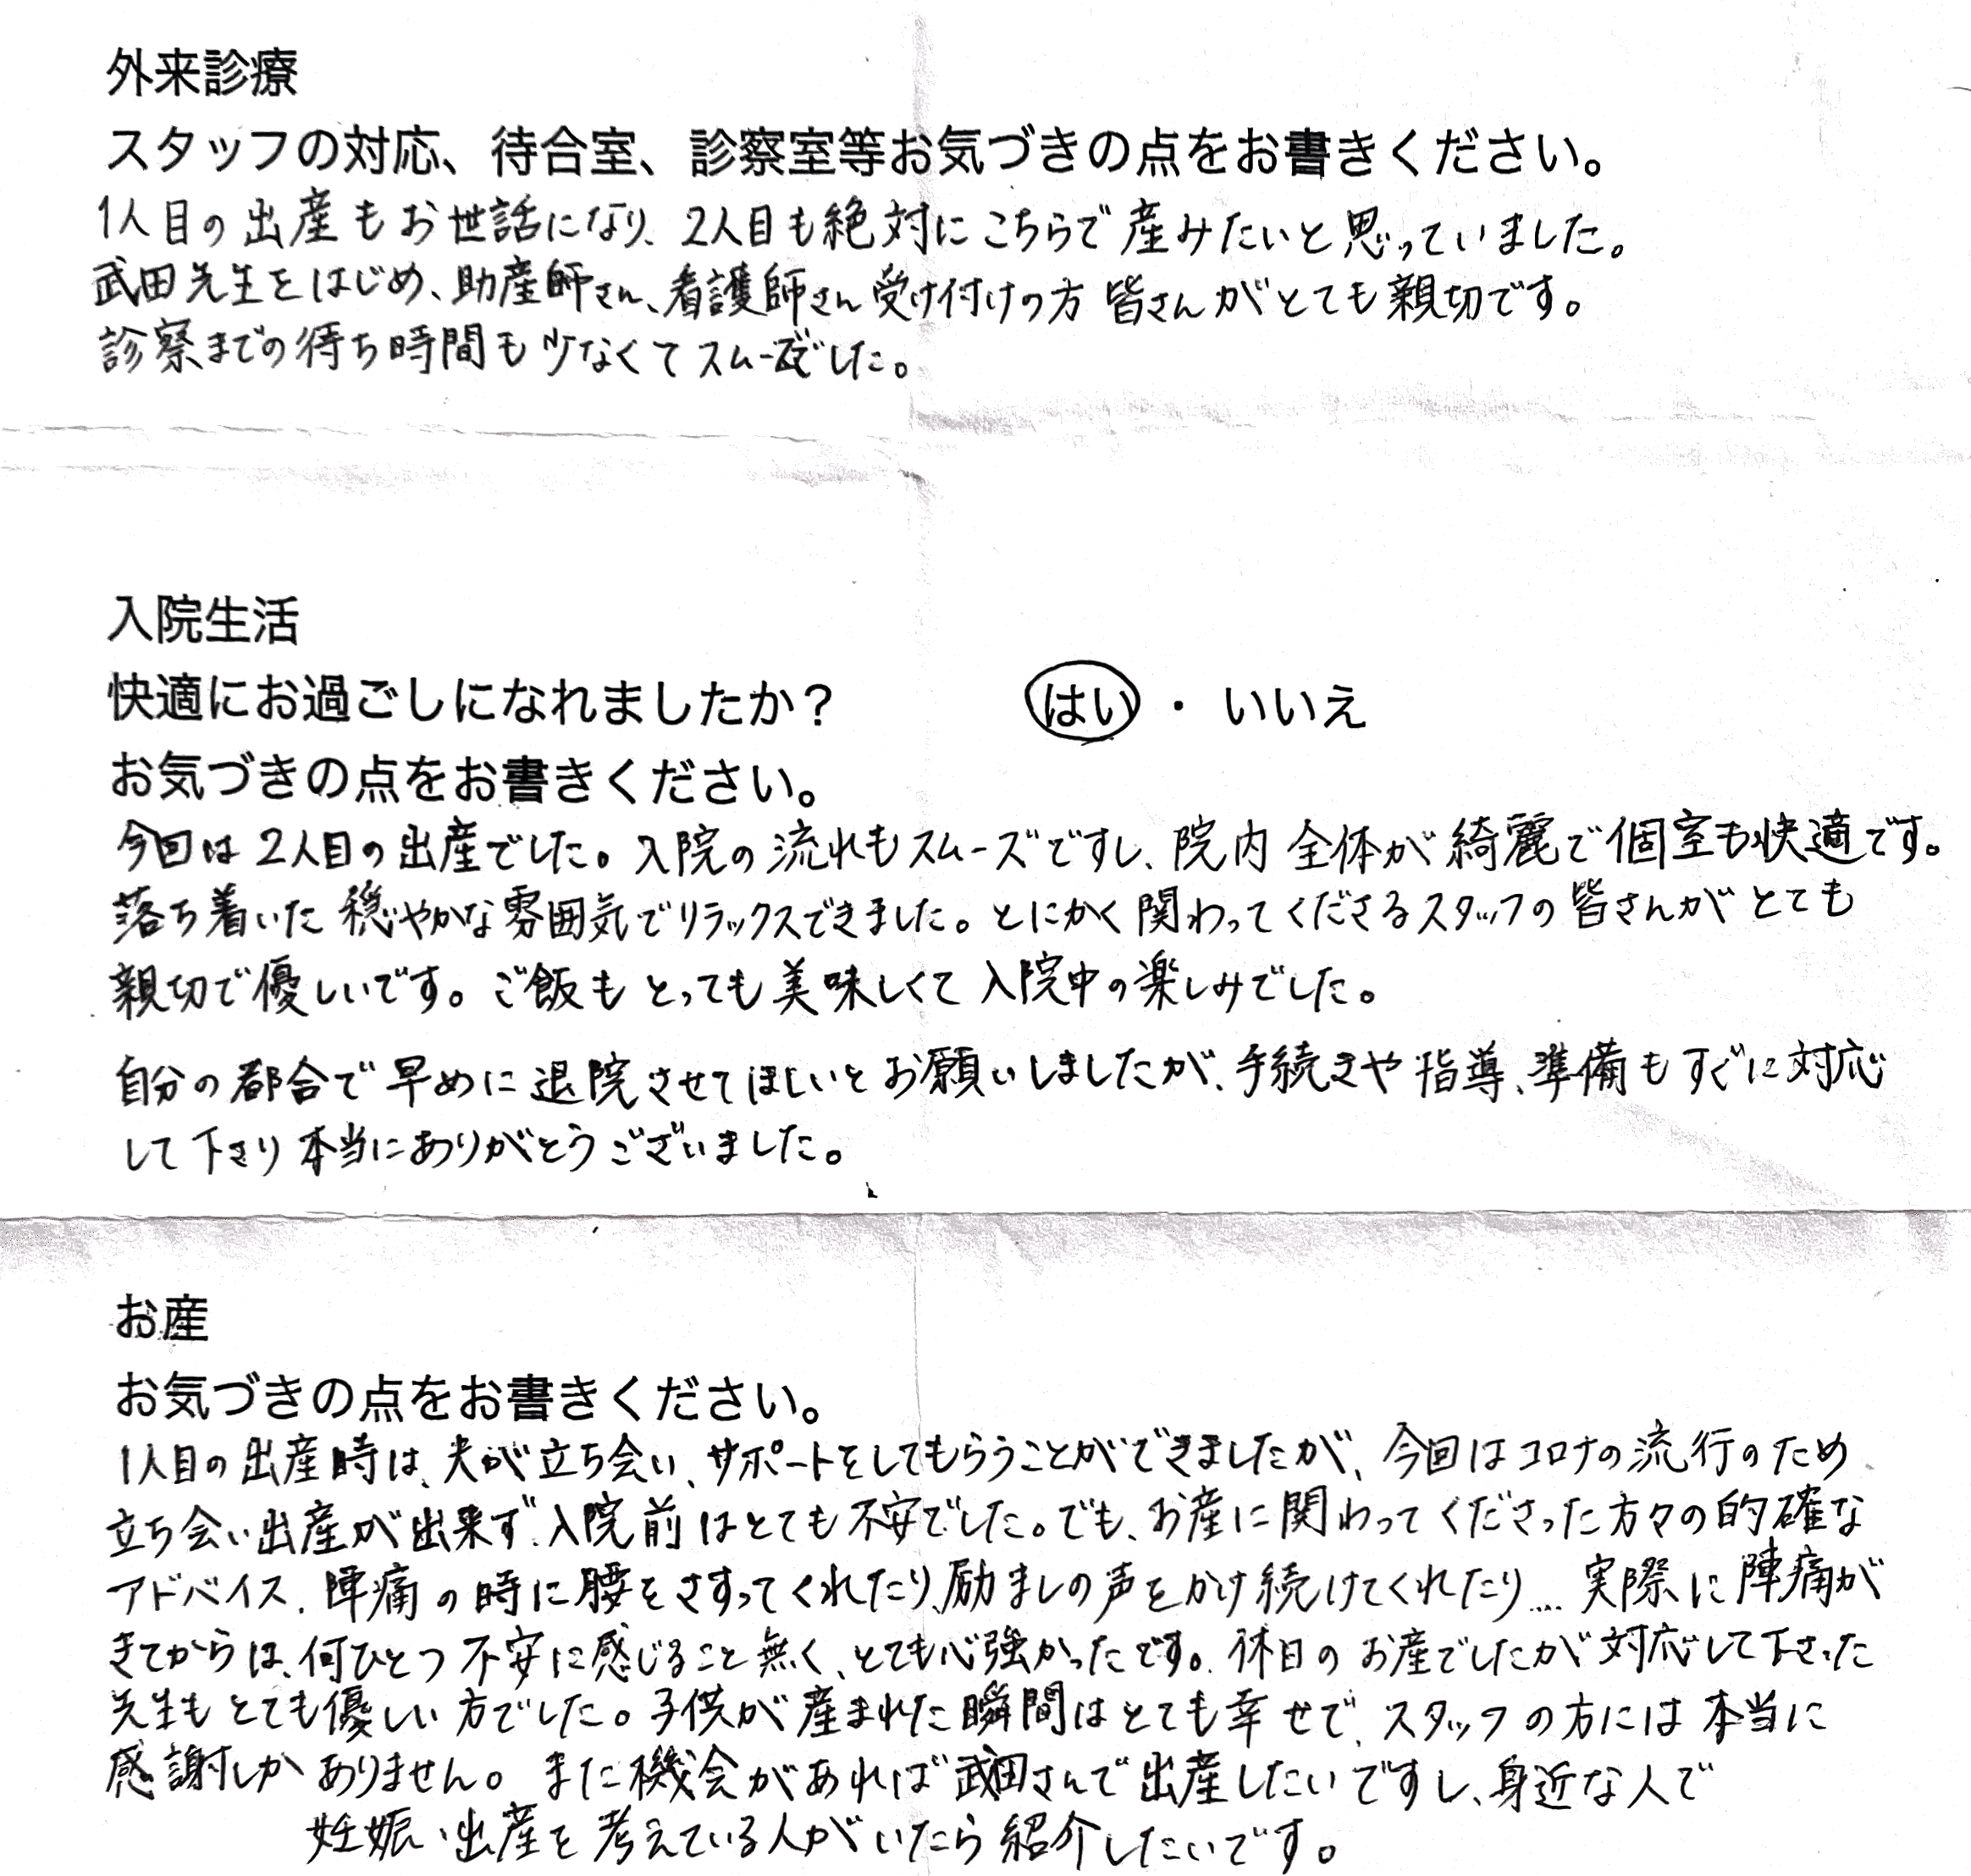 外来診療
スタッフの対応、待合室、診察室等お気づきの点をお書きください。
1人目の出産もお世話になり、2人目も絶対にこちらで産みたいと思っていました。
武田先生をはじめ、助産師さん、看護師さん受け付けの方 皆さんがとても親切です。
診察までの待ち時間も少なくてスムーズでした。
入院生活
快適にお過ごしになれましたか？ はい ・ いいえ
お気づきの点をお書きください。
今回は2人目の出産でした。入院の流れもスムーズですし、院内全体が綺麗で個室も快適です。
落ち着いた穏やかな雰囲気でリラックスできました。とにかく関わってくださるスタッフの皆さんがとても
親切で優しいです。ご飯もとっても美味しくて入院中の楽しみでした。
自分の都合で早めに退院させてほしいとお願いしましたが、手続きや指導、準備もすぐに対応
して下さり本当にありがとうございました。
お産
お気づきの点をお書きください。
1人目の出産時は、夫が立ち会い、サポートをしてもらうことができましたが、今回はコロナの流行のため
立ち会い出産が出来ず、入院前はとても不安でした。でも、お産に関わってくださった方々の的確な
アドバイス、陣痛の時に腰をさすってくれたり、励ましの声をかけ続けてくれたり…実際に陣痛が
きてからは、何ひとつ不安に感じること無く、とても心強かったです。休日のお産でしたが対応して下さった
先生もとても優しい方でした。子供が産まれた瞬間はとても幸せで、スタッフの方には本当に
感謝しかありません。また機会があれば武田さんで出産したいですし、身近な人で
妊娠、出産を考えている人がいたら紹介したいです。